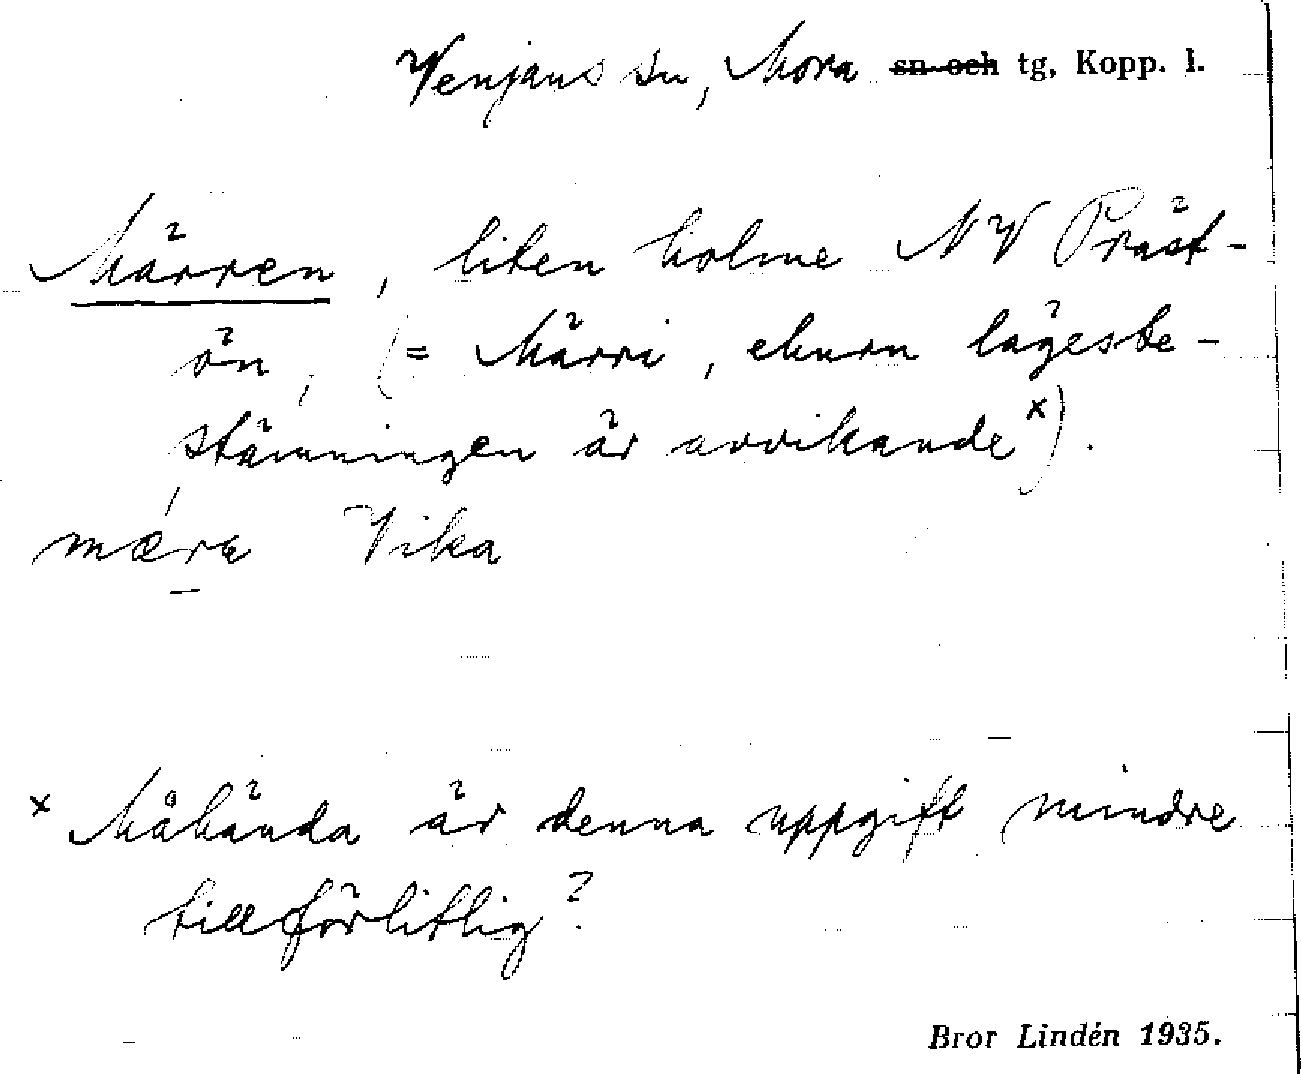 Venjans sn, Mora ~~sn och~~ tg, Kopp. l.
Märren, liten holme NV Präst-
ön, (= Märri, ehuru lägesbe-
stämningen är avvikande x).
mæra Vika
x Måhända är denna uppgift mindre
tillförlitlig?
Bror Lindén 1935.